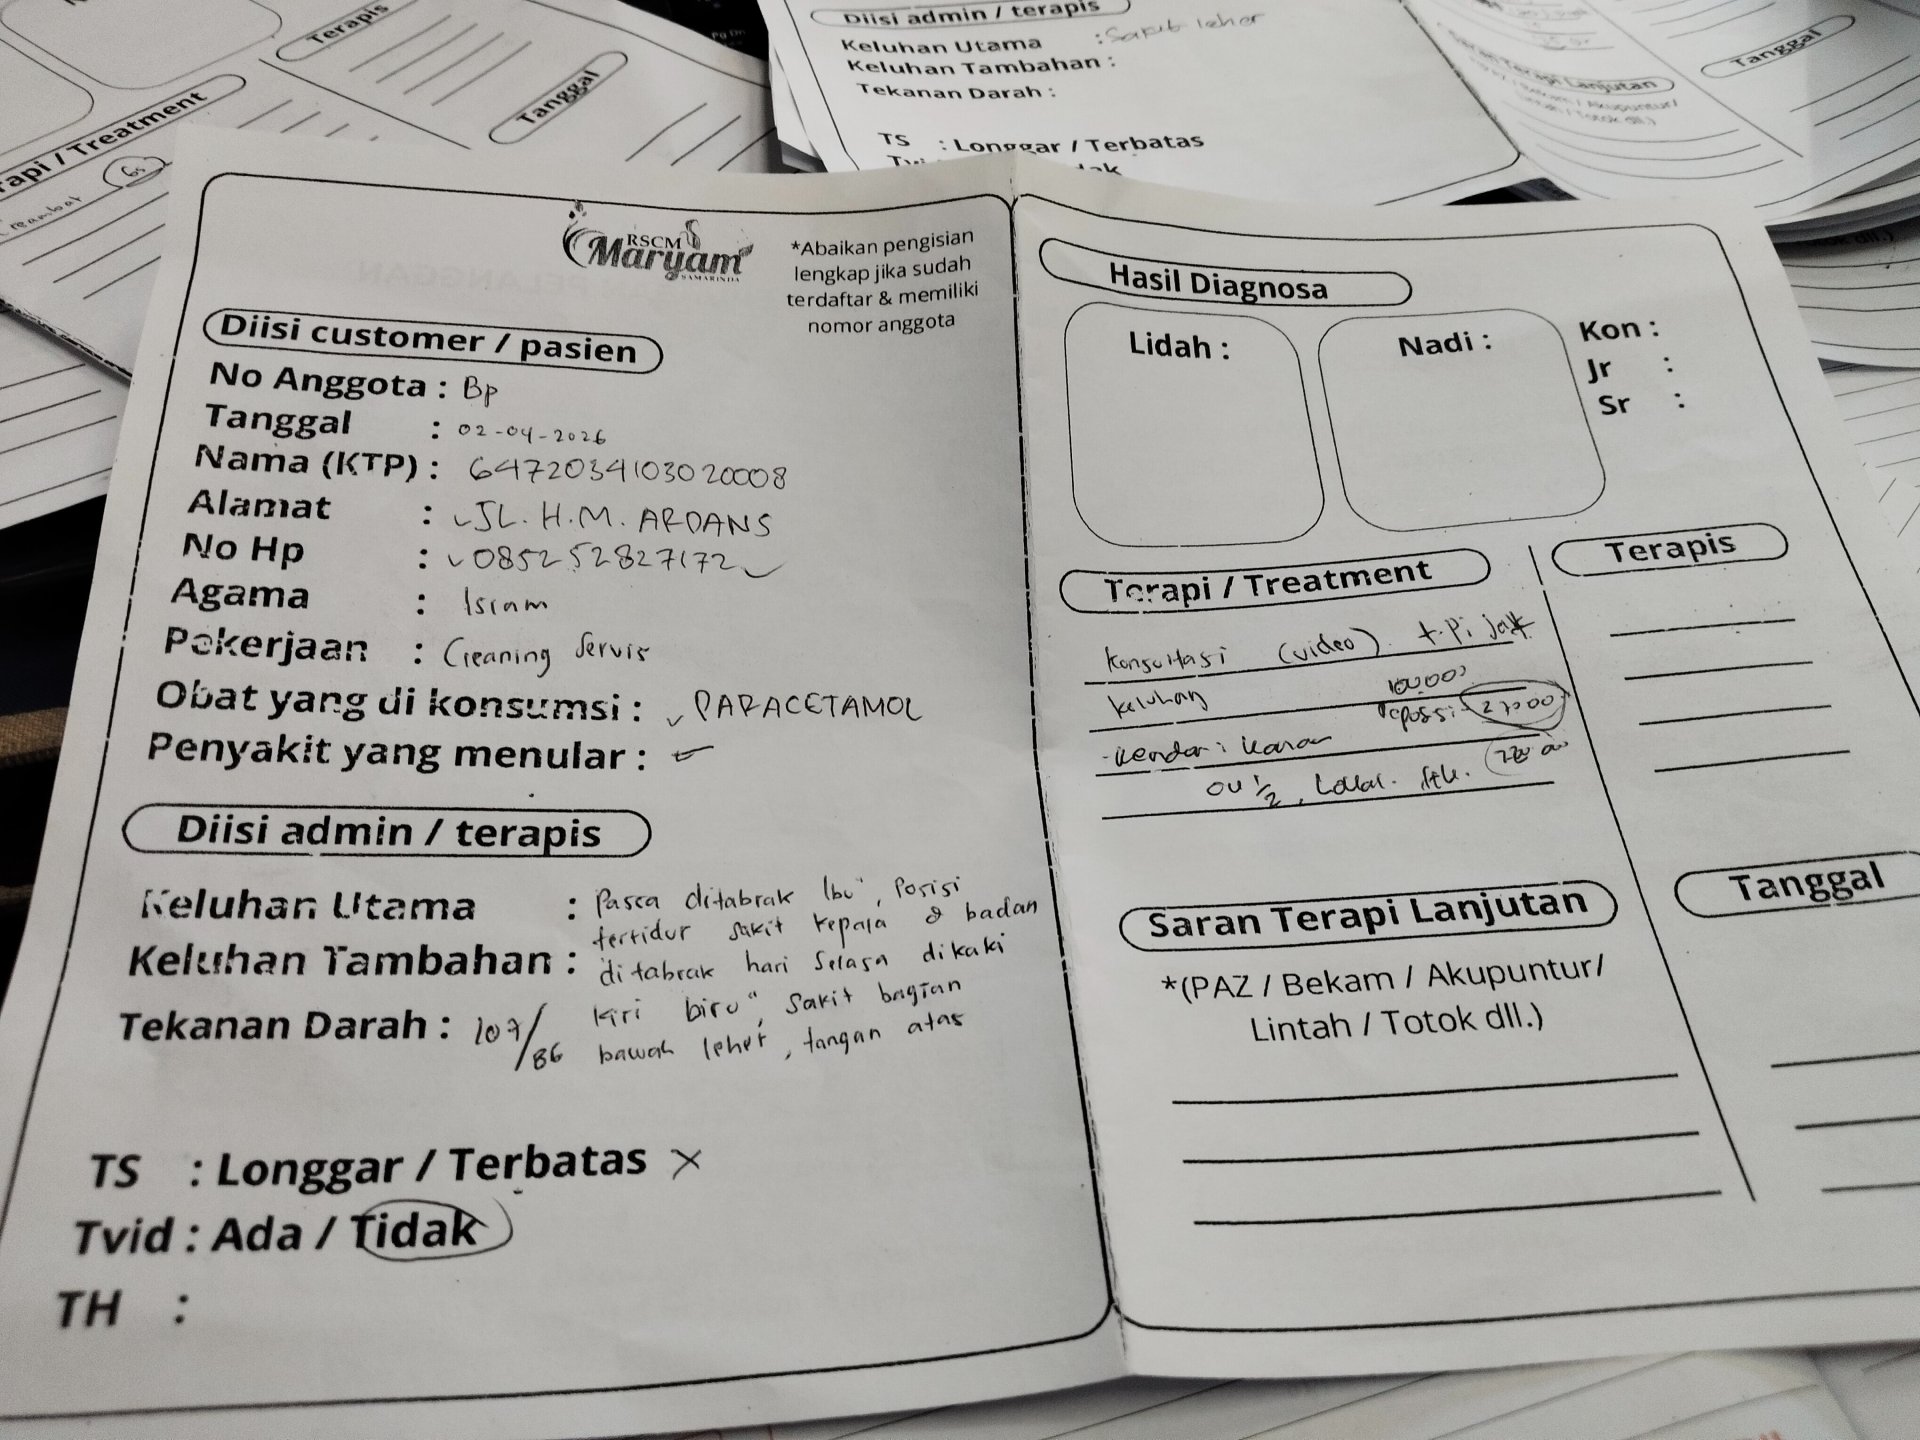 Terapis
Tanggal
rapi / Treatment
Diisi admin / terapis
Keluhan Utama : Sakit leher
Keluhan Tambahan :
Tekanan Darah :
TS : Longgar / Terbatas
Saran Terapi Lanjutan
Tanggal
RSCM
Maryam
SAMARINDA
*Abaikan pengisian
lengkap jika sudah
terdaftar & memiliki
nomor anggota
Diisi customer / pasien
No Anggota : Bp
Tanggal : 02-04-2026
Nama (KTP) : 6472034103020008
Alamat : JL. H.M. ARDANS
No Hp : 085252827172
Agama : Islam
Pekerjaan : Cleaning Servis
Obat yang di konsumsi : PARACETAMOL
Penyakit yang menular : -
Diisi admin / terapis
Keluhan Utama : Pasca ditabrak Ibu", Posisi
tertidur sakit kepala & badan
Keluhan Tambahan : ditabrak hari Selasa dikaki
kiri biru", sakit bagian
Tekanan Darah : 107/86 bawah leher, tangan atas
TS : Longgar / Terbatas X
Tvid : Ada / Tidak
TH :
Hasil Diagnosa
Lidah :
Nadi :
Kon :
Jr :
Sr :
Terapi / Treatment
Konsultasi (video)
keluhan
Terapis
Saran Terapi Lanjutan
*(PAZ / Bekam / Akupuntur/
Lintah / Totok dll.)
Tanggal